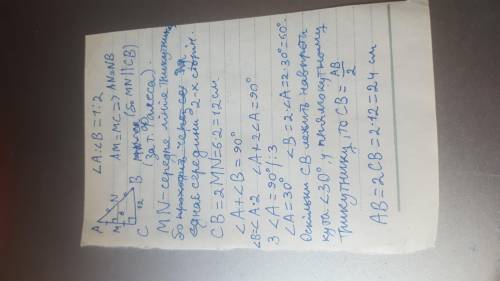 ∠A:∠B=1:2
A
M
N
6
12
B
C
AM=MC=> AN=NB
(бо MN||CB)
(за т. Фалеса).
MN-середня лінія трикутнику,
бо
єднає середини 2-х сторін.
CB=2MN=6·2=12см
<A+<B=90°
<B=<A·2 <A+2<A=90°
3<A=90°/:3
<A=30° <B=2·<A=2·30°=60°
Оскільки CB лежить навпроти
кута <30° у прямокутному
трикутнику, то CB=AB/2
AB=2CB=2·12=24 см